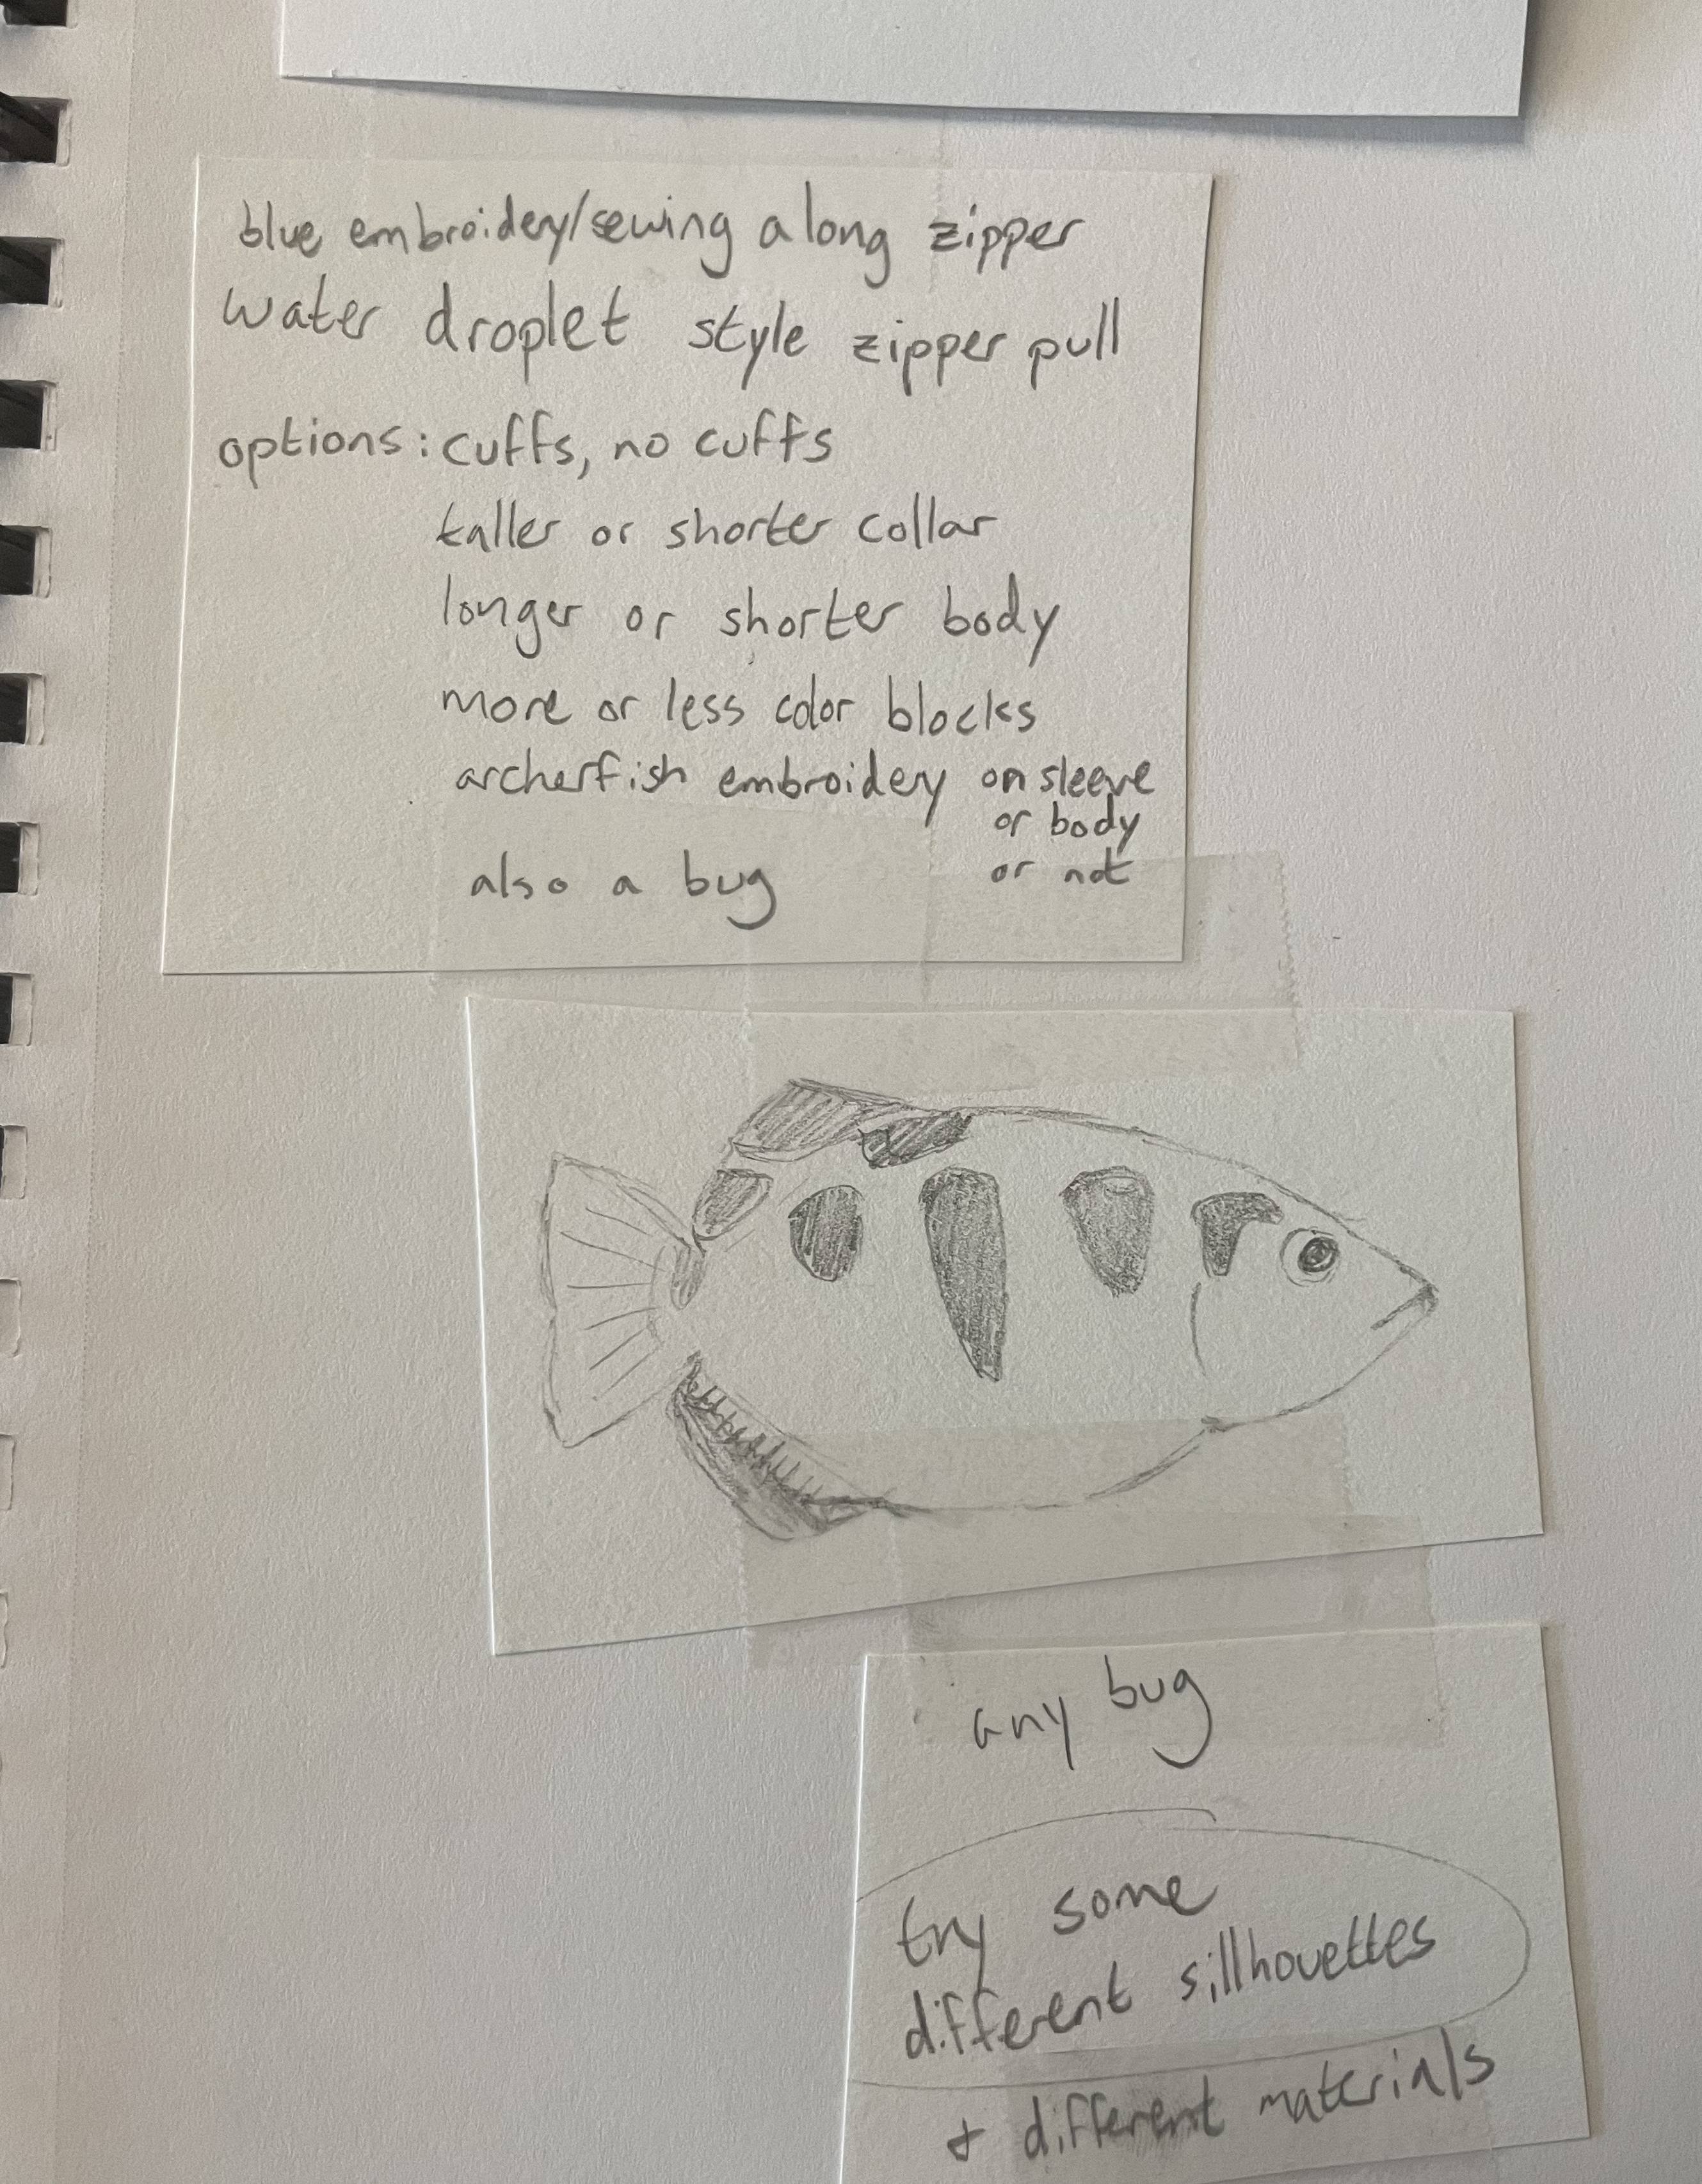 blue embroidery/sewing along zipper
water droplet style zipper pull
options: cuffs, no cuffs
taller or shorter collar
longer or shorter body
more or less color blocks
archerfish embroidery on sleeve
or body
or not
also a bug
any bug
try some
different sillhouettes
+ different materials